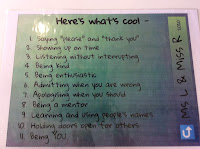 Here's what's cool -
1. Saying "please" and "thank you"
2. Showing up on time
3. Listening without interrupting
4. Being kind
5. Being enthusiastic
6. Admitting when you are wrong
7. Apologising when you should
8. Being a mentor
9. Learning and using people's names
10. Holding doors open for others
11. Being YOU
Ms L & Miss R